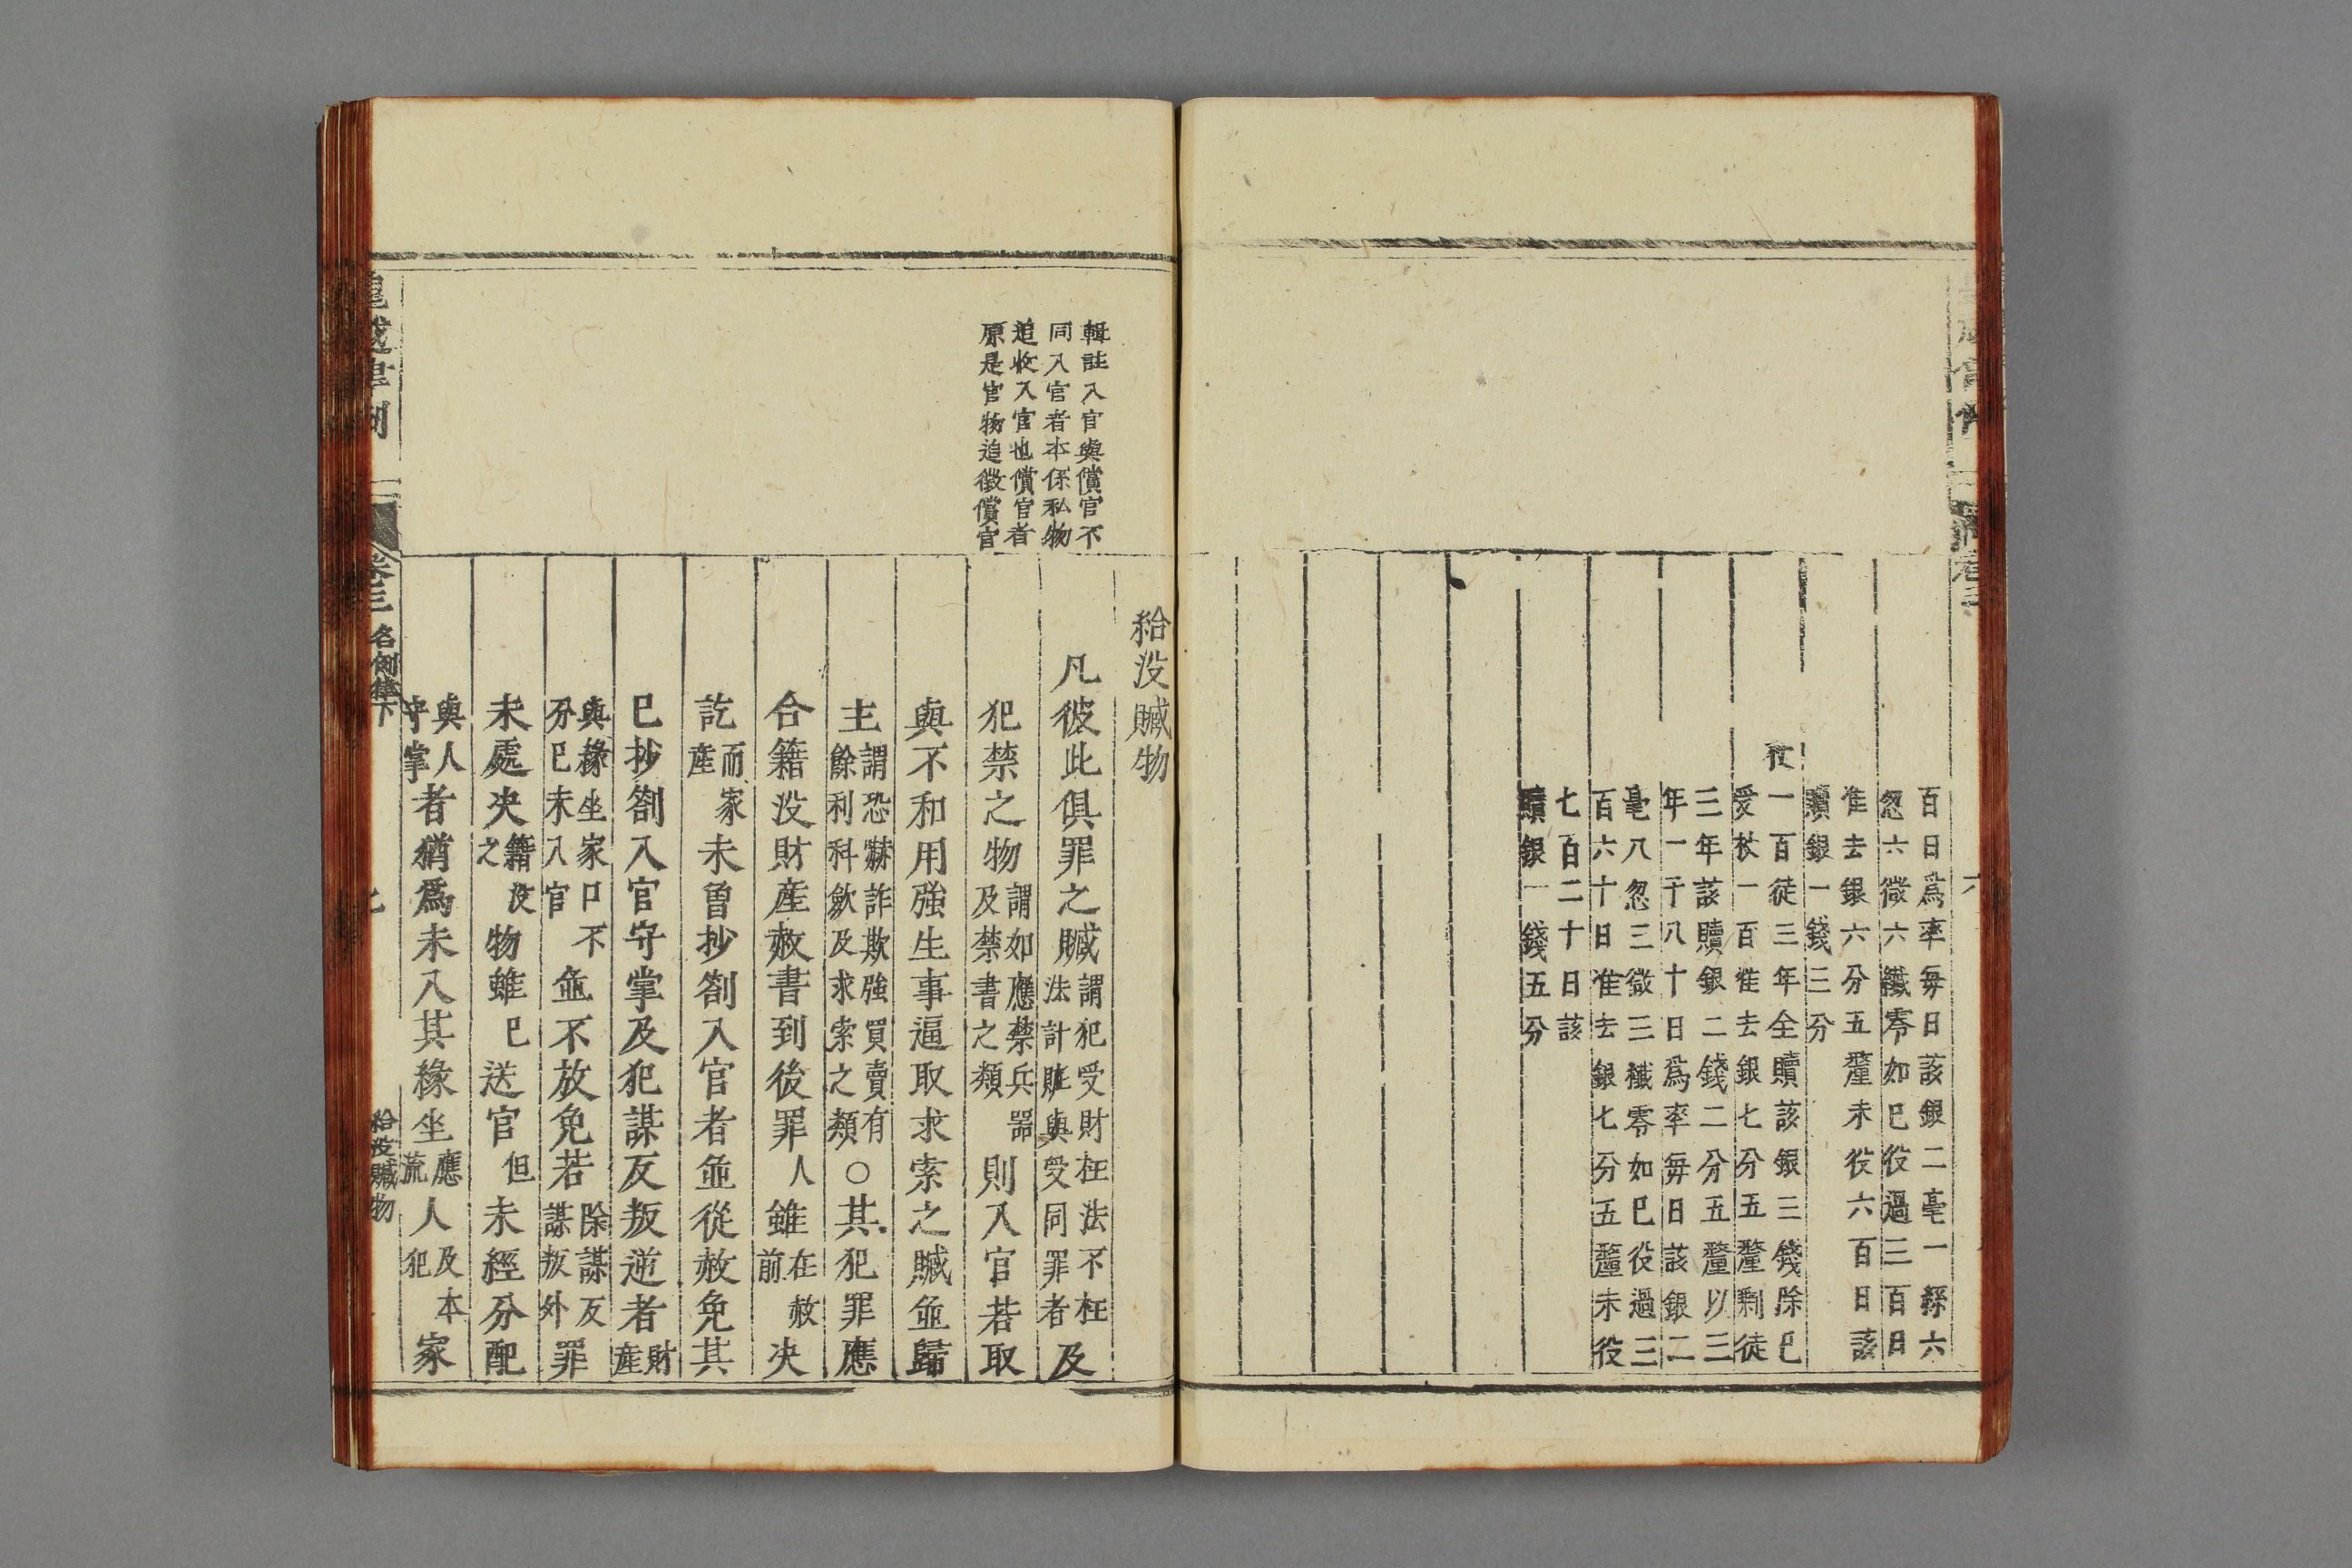 百日爲率每日該銀二毫一絲六
忽六微六纖零如已役過三百日
准去銀六分五釐未役六百日該
贖銀一錢三分
杖一百徒三年全贖該銀三錢除已
受杖一百准去銀七分五釐剩徒
三年該贖銀二錢二分五釐以三
年一千八十日爲率每日該銀二
毫八忽三微三纖零如已役過三
百六十日准去銀七分五釐未役
七百二十日該
贖銀一錢五分
輯註入官與償官不
同入官者本係私物
追收入官也償官者
原是官物追徵償官
給没贓物
凡彼此俱罪之贓謂犯受財枉法不枉
法計贓與受同罪者及
犯禁之物謂如應禁兵器
及禁書之類則入官若取
與不和用強生事逼取求索之贓並歸
主謂恐嚇詐欺強買賣有
餘利科歛及求索之類○其犯罪應
合籍没財產赦書到後罪人雖在赦
前决
訖而家
產未曾抄劄入官者並從赦免其
已抄劄入官守掌及犯謀反叛逆者財
產
與緣坐家口不
分已未入官並不放免若除謀反
謀叛外罪
未處决籍没
之物雖已送官但未經分配
與人
守掌者猶爲未入其緣坐應
流人及本
犯家
律例
卷三
名例律下
給没贓物